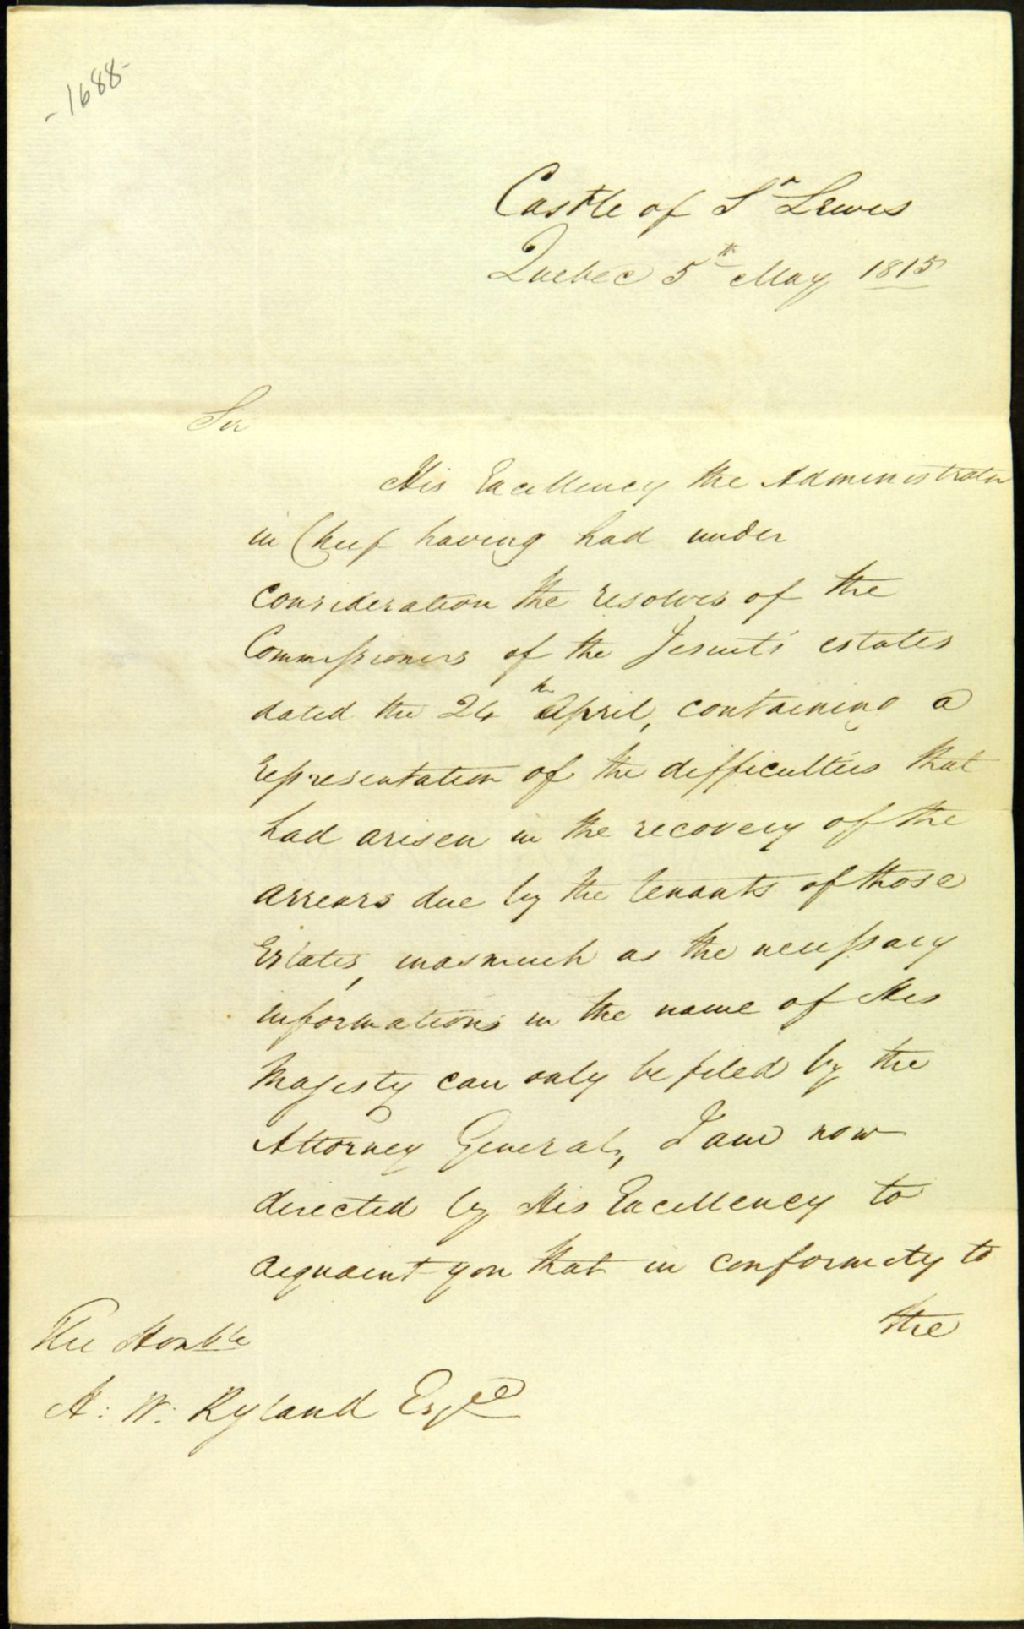 -1688-
Castle of St Lewis
Quebec 5th May 1815
Sir
His Excellency the Administrator
in Chief having had under
consideration the resolves of the
Commissioners of the Jesuits' estates
dated the 24th April, containing a
representation of the difficulties that
had arisen in the recovery of the
arrears due by the tenants of those
Estates, inasmuch as the necessary
informations in the name of His
Majesty can only be filed by the
Attorney General, I am now
directed by His Excellency to
acquaint you that in conformity to
the
The Honble
H: W: Ryland Esqre